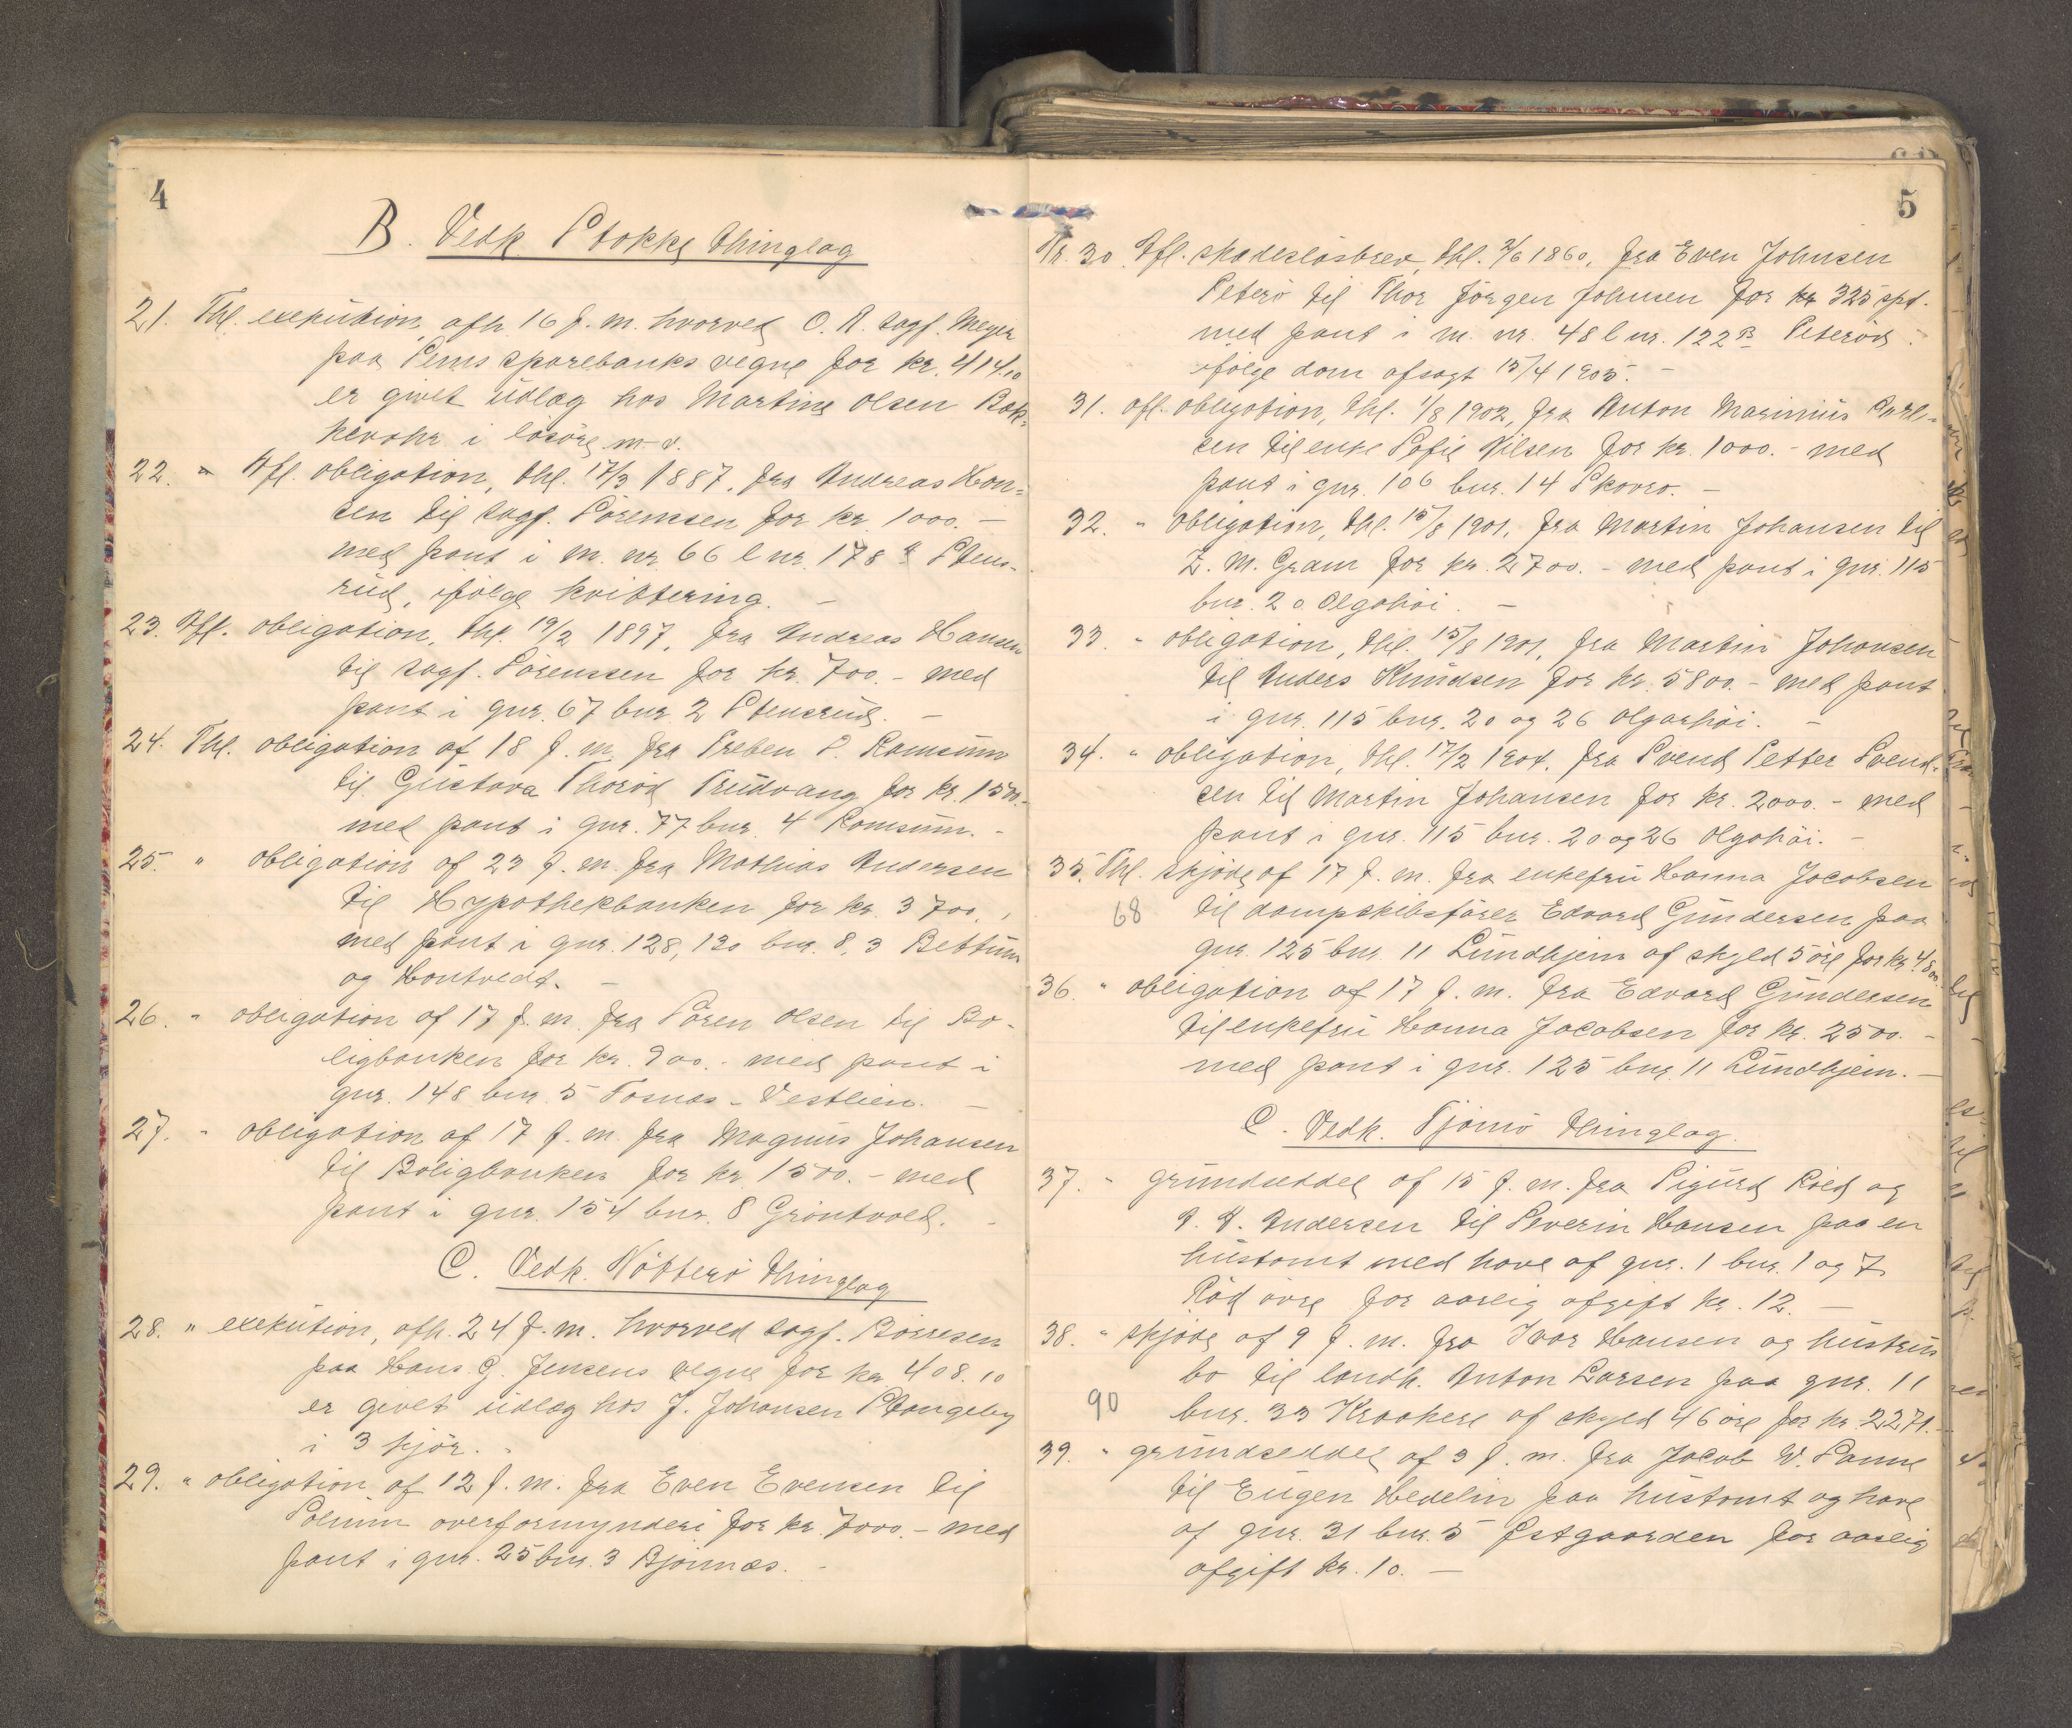 4
B. Vedk. Stokke thinglag
21. Thl. exekution, afh 16 f. m. hvorved O. R. sagf. Meyer
paa Sems sparebanks vegne for kr. 414.10
er givet udlæg hos Martine Olsen Bak-
i løsøre m. v.
22. " Afl. obligation, thl. 17/3 1887, fra Andreas Han-
sen til sagf. Sørenssen for kr. 1000. -
med pant i m. nr. 66 l nr. 178 a Stens-
rud, ifølge kvittering. -
23. Afl. obligation, thl. 19/2 1897, fra Andreas Hansen
til sagf. Sørenssen for kr. 700. - med
pant i gnr. 67 bnr. 2 Stensrud. -
24. Thl. obligation af 18 f. m. fra Preben P. Ramsum
til Gustava Thorød Trudvang for kr. 1500. -
med pant i gnr. 77 bnr. 4 Ramsum. -
25. " obligation af 23 f. m. fra Mathias Andersen
til Hypothekbanken for kr. 3700. ,
med pant i gnr. 128, 130 bnr. 8, 3 Bettum
og Hontvedt. -
26. " obligation af 17 f. m. fra Søren Olsen til Bo-
ligbanken for kr. 900. - med pant i
gnr. 148 bnr. 5 Fosnas - Vestlien. -
27. " obligation af 17 f. m. fra Magnus Johansen
til Boligbanken for kr. 1500. - med
pant i gnr. 154 bnr. 8 Grøntvold. -
C. Vedk. Nøtterø thinglag
28. " exekution, afh. 24 f. m. hvorved sagf. Børresen
paa Hans G. Jensens vegne for kr 408.10
er givet udlæg hos J. Johansen Stangeby
i 3 kjør. -
29. " obligation af 12 f. m. fra Even Evensen til
Solum overformynderi for kr. 7000. - med
pant i gnr. 25 bnr. 3 Bjønnæs. -
5
Nr. 30. Afl. skadesløsbrev, thl. 2/6 1860, fra Even Johnsen
Peterø til Thor Jørgen Johnsen for kr 325 spt.
med pant i m. nr. 48 l nr. 122 B Peterød
ifølge dom afsagt 15/4 1905. -
31. Afl. obligation, thl. 1/8 1902, fra Anton Marinius Carl-
sen til enke Sofie Nilsen for kr. 1000. - med
pant i gnr. 106 bnr. 14 Skovro. -
32. " obligation, thl. 15/8 1901, fra Martin Johansen til
Z. M. Gram for kr. 2700. - med pant i gnr. 115
bnr. 20 Olgahøi. -
33. " obligation, thl. 15/8 1901, fra Martin Johansen
til Anders Knudsen for kr. 5800. - med pant
i gnr. 115 bnr. 20 og 26 Olgarhøi. -
34. " obligation, thl. 17/2 1904, fra Svend Petter Svend-
sen til Martin Johansen for kr. 2000. - med
pant i gnr. 115 bnr. 20 og 26 Olgahøi. -
35. Thl. skjøde af 17 f. m. fra enkefru Hanna Jacobsen
68 til dampskibsfører Edvard Gundersen paa
gnr. 125 bnr. 11 Lundhjem af skyld 5 øre for kr. 4500.
36. " obligation af 17 f. m. fra Edvard Gundersen
til enkefru Hanna Jacobsen for kr. 2500. -
med pant i gnr. 125 bnr. 11 Lundhjem. -
C. Vedk. Tjømø thinglag.
37. " grundseddel af 15 f. m. fra Sigurd Røed og
Andersen til Severin Hansen paa en
hustomt med have af gnr. 1 bnr. 1 og 7
Rød øvre for aarlig afgift kr. 12. -
38. " skjøde af 9 f. m. fra Ivar Hansen og hustrus
bo til landh. Anton Larsen paa gnr. 11
90 bnr. 33 Kraakere af skyld 46 øre for kr 2271. -
39. " grundseddel af 3 f. m. fra Jacob W. Sanne
til Eugen Hedelin paa hustomt og have
af gnr. 31 bnr. 5 Østgaarden for aarlig
afgift kr. 10. -